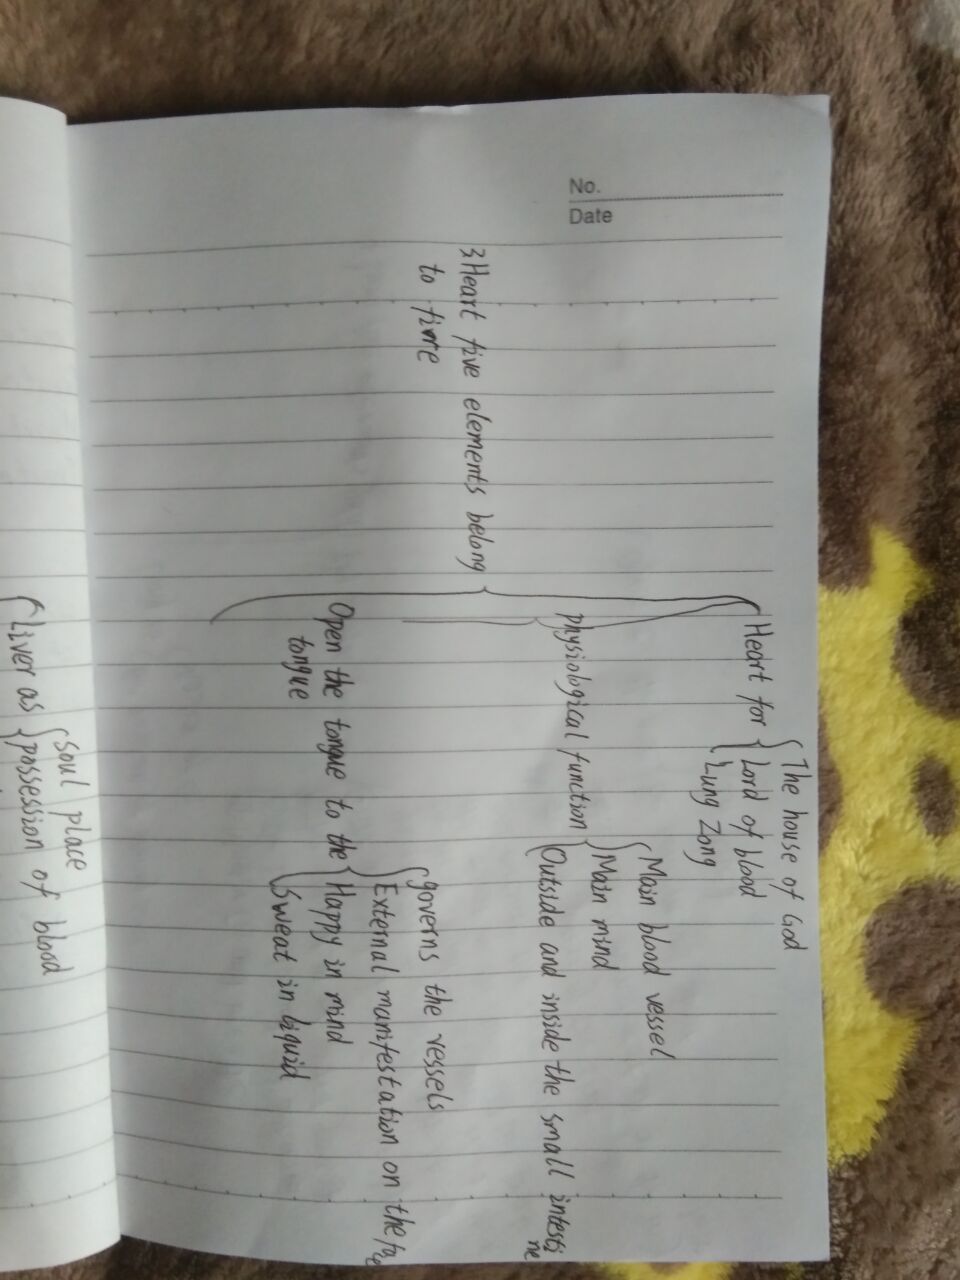 No.
Date
Heart for
The house of God
Lord of blood
Lung Zong
3 Heart five elements belong
to fire
physiological function
Main blood vessel
Main mind
Outside and inside the small intesti
ne
Open the tongue to the
tongue
governs the vessels
External manifestation on the fa
ce
Happy in mind
Sweat in liquid
Liver as
Soul place
possession of blood